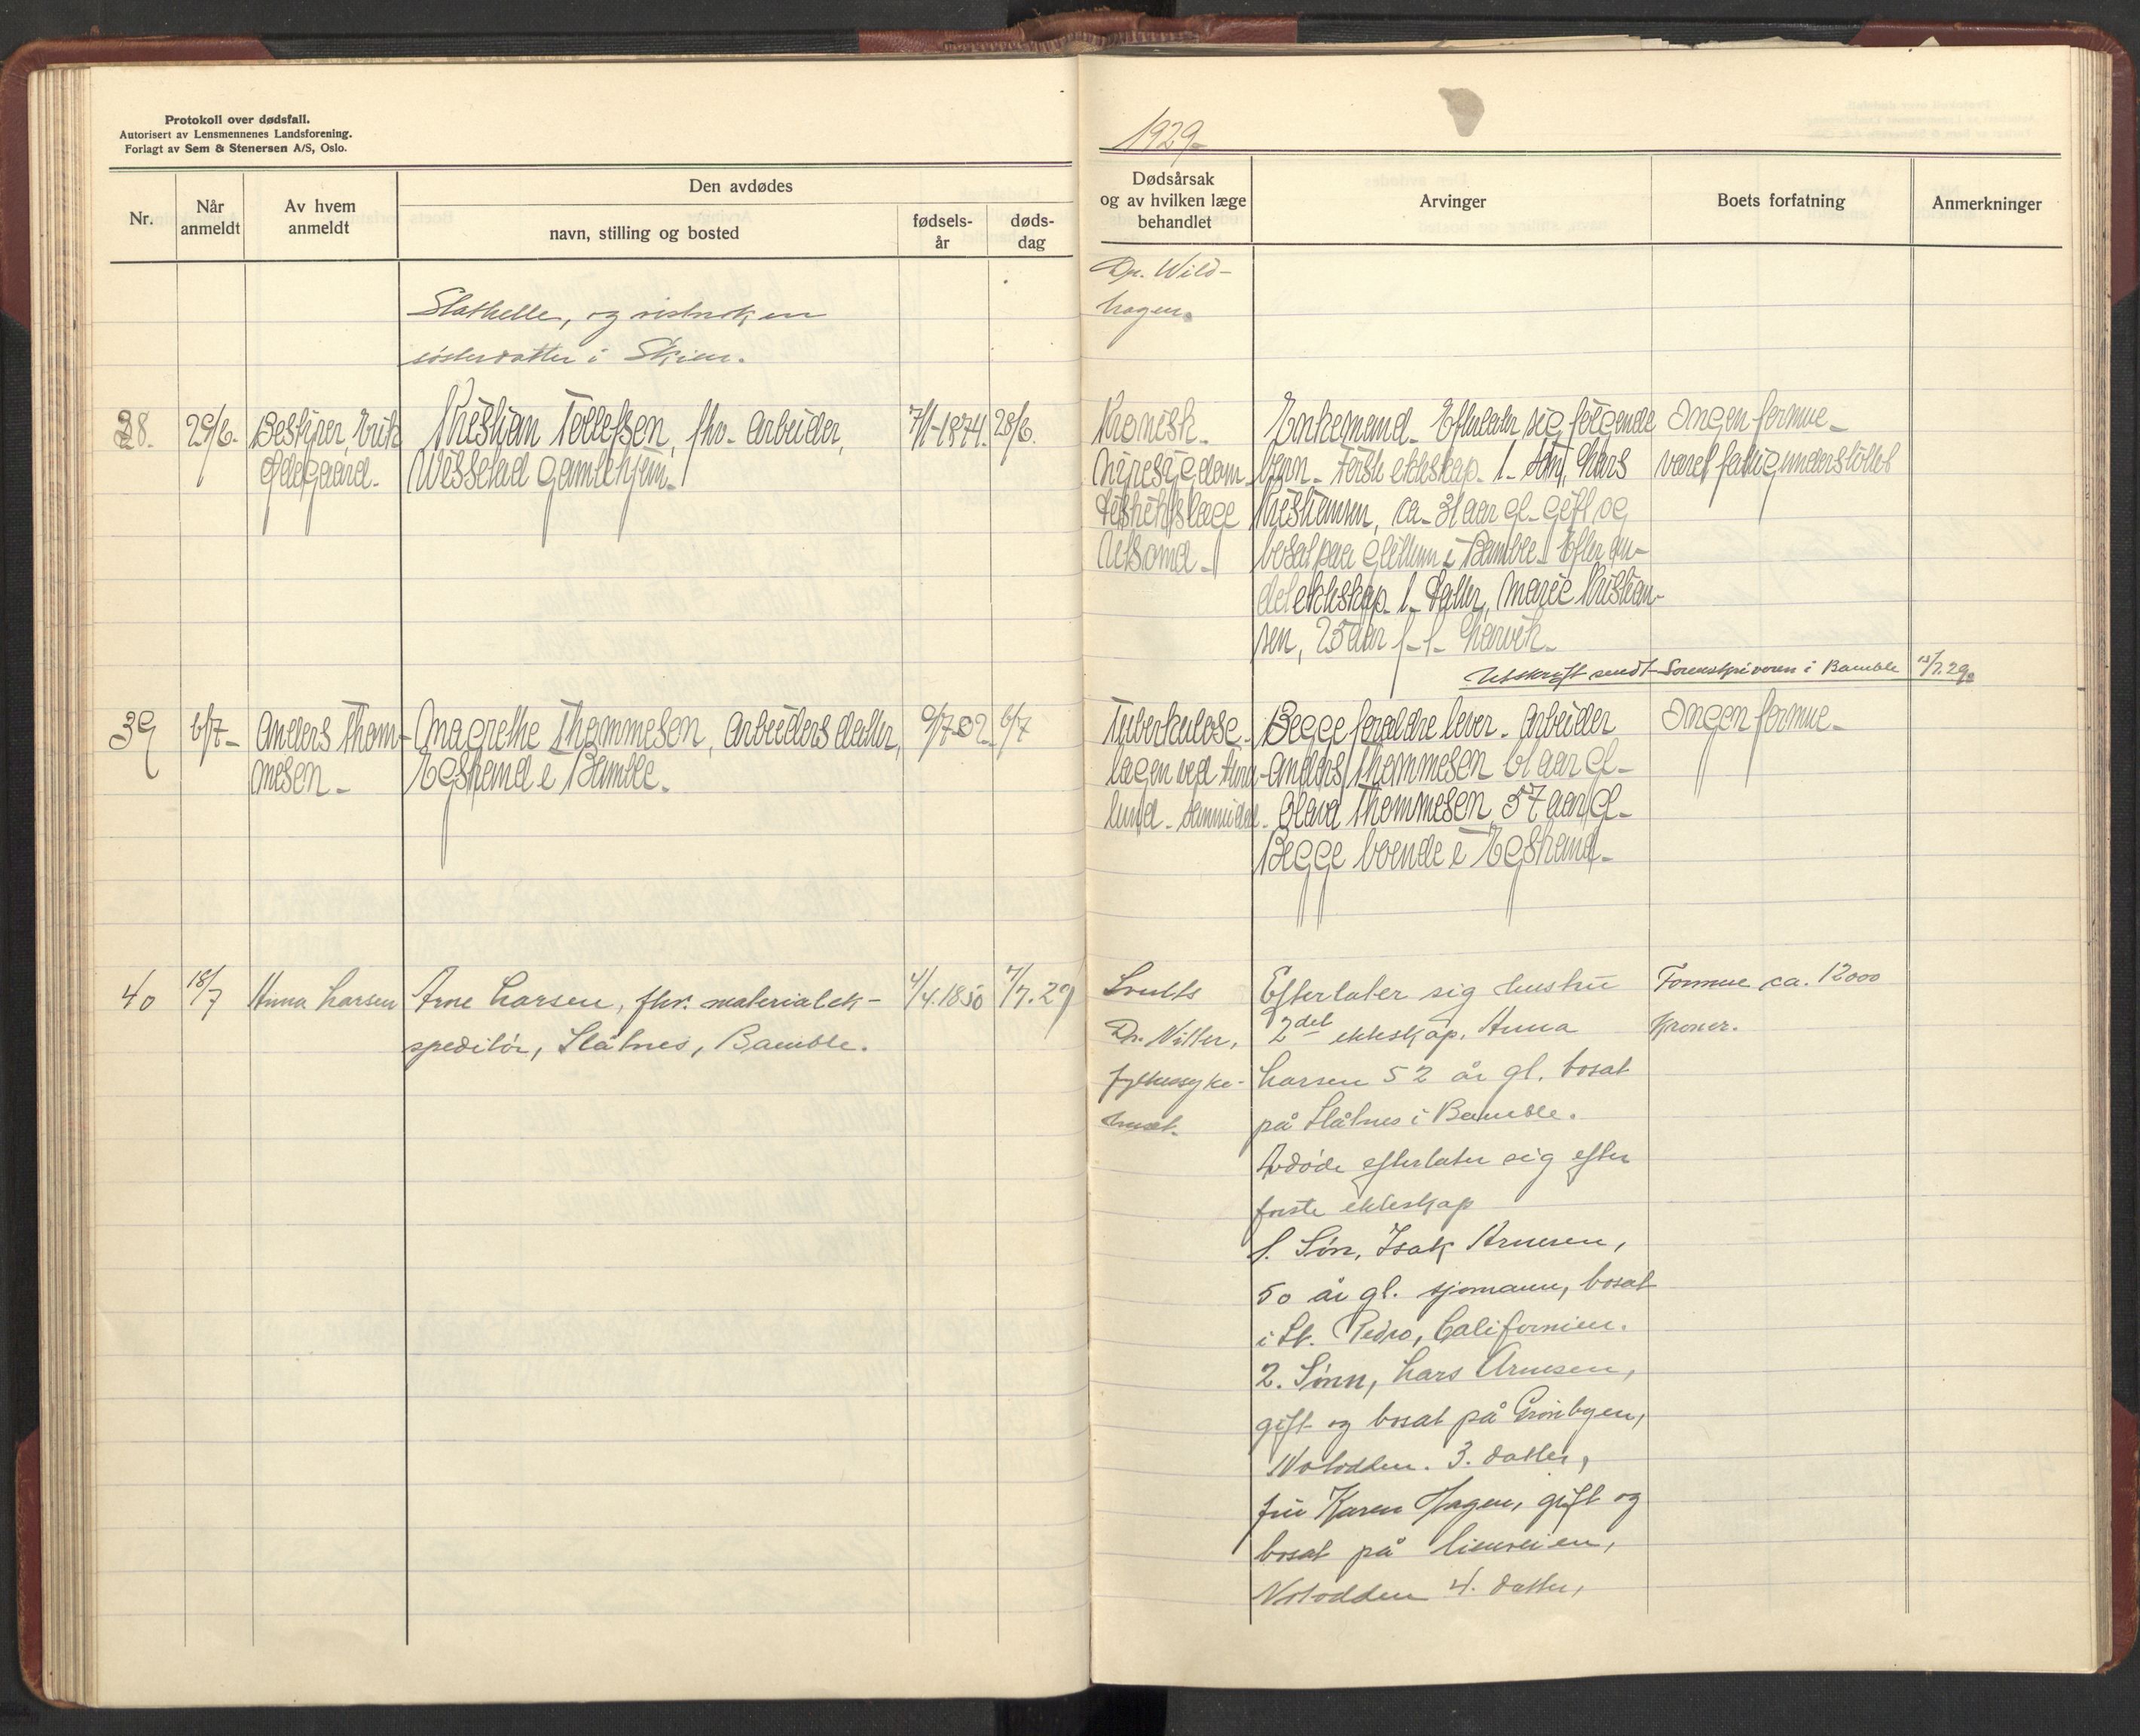 Protokoll over dødsfall.
Autorisert av Lensmennenes Landsforening.
Forlagt av Sem & Stenersen A/S, Oslo.
Nr.
Når anmeldt
Av hvem anmeldt
Den avdødes
navn, stilling og bosted
fødsels-
år
døds-
dag
Stathelle, og vistnok en
søsterdatter i Skien.
38.
29/6.
Bestyrer, Erik
Ødegaard.
Kristian Tollefsen, fhv. Arbeider,
Wissestad Gamlehjem.
7/1-1874.
28/6.
39
6/7-
Anders Thom-
mesen.
Magrethe Thommesen, Arbeiders datter,
Egstrand i Bamble.
9/7-02
6/7
40
18/7
Anna Larsen
Arne Larsen, fhv. materialek-
speditør, Slåtnes, Bamble.
4/4.1850
7/7.29
1929
Dødsårsak
og av hvilken læge
behandlet
Arvinger
Boets forfatning
Anmerkninger
Dr. Wild-
hagen.
Kronisk
Nyresygdom
Distriktslæge
Enkemand. Efterlater sig følgende
barn. Første ekteskap. 1. Søn, Lars
Kristiansen, ca. 31 aar gl. gift og
bosat paa i Bamble. Efter an-
det ekteskap 1. Datter, Marie Kristian-
sen, 25 aar f. f. Larvik.
Ingen formue
været fattigunderstøttet
Utskrift sendt Sorenskriveren i Bamble 15/7.29.
Tuberkulose.
Lægen ved
lund. Sannidal.
Begge foraldre lever. Arbeider
Anders Thommesen 61 aar gl.
Olava Thommesen, 57 aar gl.
Begge boende i Egstrand.
Ingen formue
Dr. Nitter,
fylkessyke-
huset.
Efterlater sig hustru
2det ekteskap. Anna
Larsen 52 år gl. bosat
på Slåtnes i Bamble.
Avdøde efterlater sig efter
første ekteskap
1. Søn, Isak Arnesen,
50 år gl. sjømann, bosat
i St. Pedro, Californien.
2. Sønn, Lars Arnesen,
gift og bosat på Grønbyen,
Notodden. 3. datter,
fru Karen Hagen, gift og
bosat på Lienveien,
Notodden 4. datter,
Formue ca. 12000
Kroner.